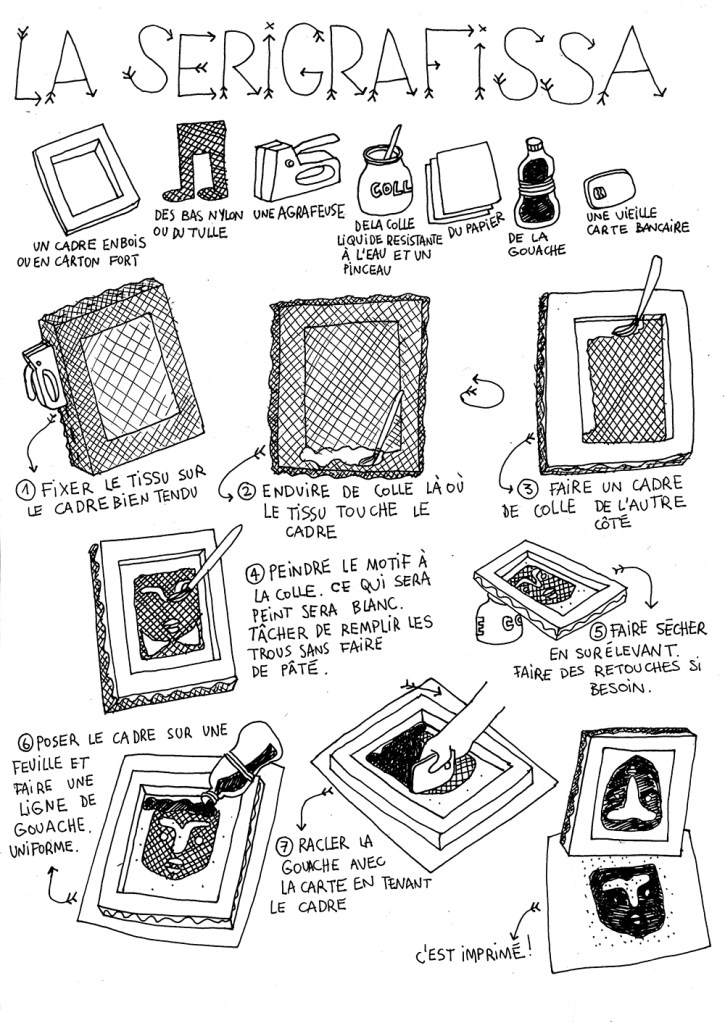 LA SERIGRAFISSA
UN CADRE EN BOIS
OU EN CARTON FORT
DES BAS NYLON
OU DU TULLE
UNE AGRAFEUSE
COLL
DE LA COLLE
LIQUIDE RESISTANTE
À L'EAU ET UN
PINCEAU
DU PAPIER
DE LA
GOUACHE
UNE VIEILLE
CARTE BANCAIRE
① FIXER LE TISSU SUR
LE CADRE BIEN TENDU
② ENDUIRE DE COLLE LÀ OÙ
LE TISSU TOUCHE LE
CADRE
③ FAIRE UN CADRE
DE COLLE DE L'AUTRE
CÔTÉ
④ PEINDRE LE MOTIF À
LA COLLE. CE QUI SERA
PEINT SERA BLANC.
TÂCHER DE REMPLIR LES
TROUS SANS FAIRE
DE PÂTÉ.
⑤ FAIRE SÉCHER
EN SURÉLEVANT.
FAIRE DES RETOUCHES SI
BESOIN.
⑥ POSER LE CADRE SUR UNE
FEUILLE ET
FAIRE UNE
LIGNE DE
GOUACHE.
UNIFORME.
⑦ RACLER LA
GOUACHE AVEC
LA CARTE EN TENANT
LE CADRE
C'EST IMPRIMÉ!